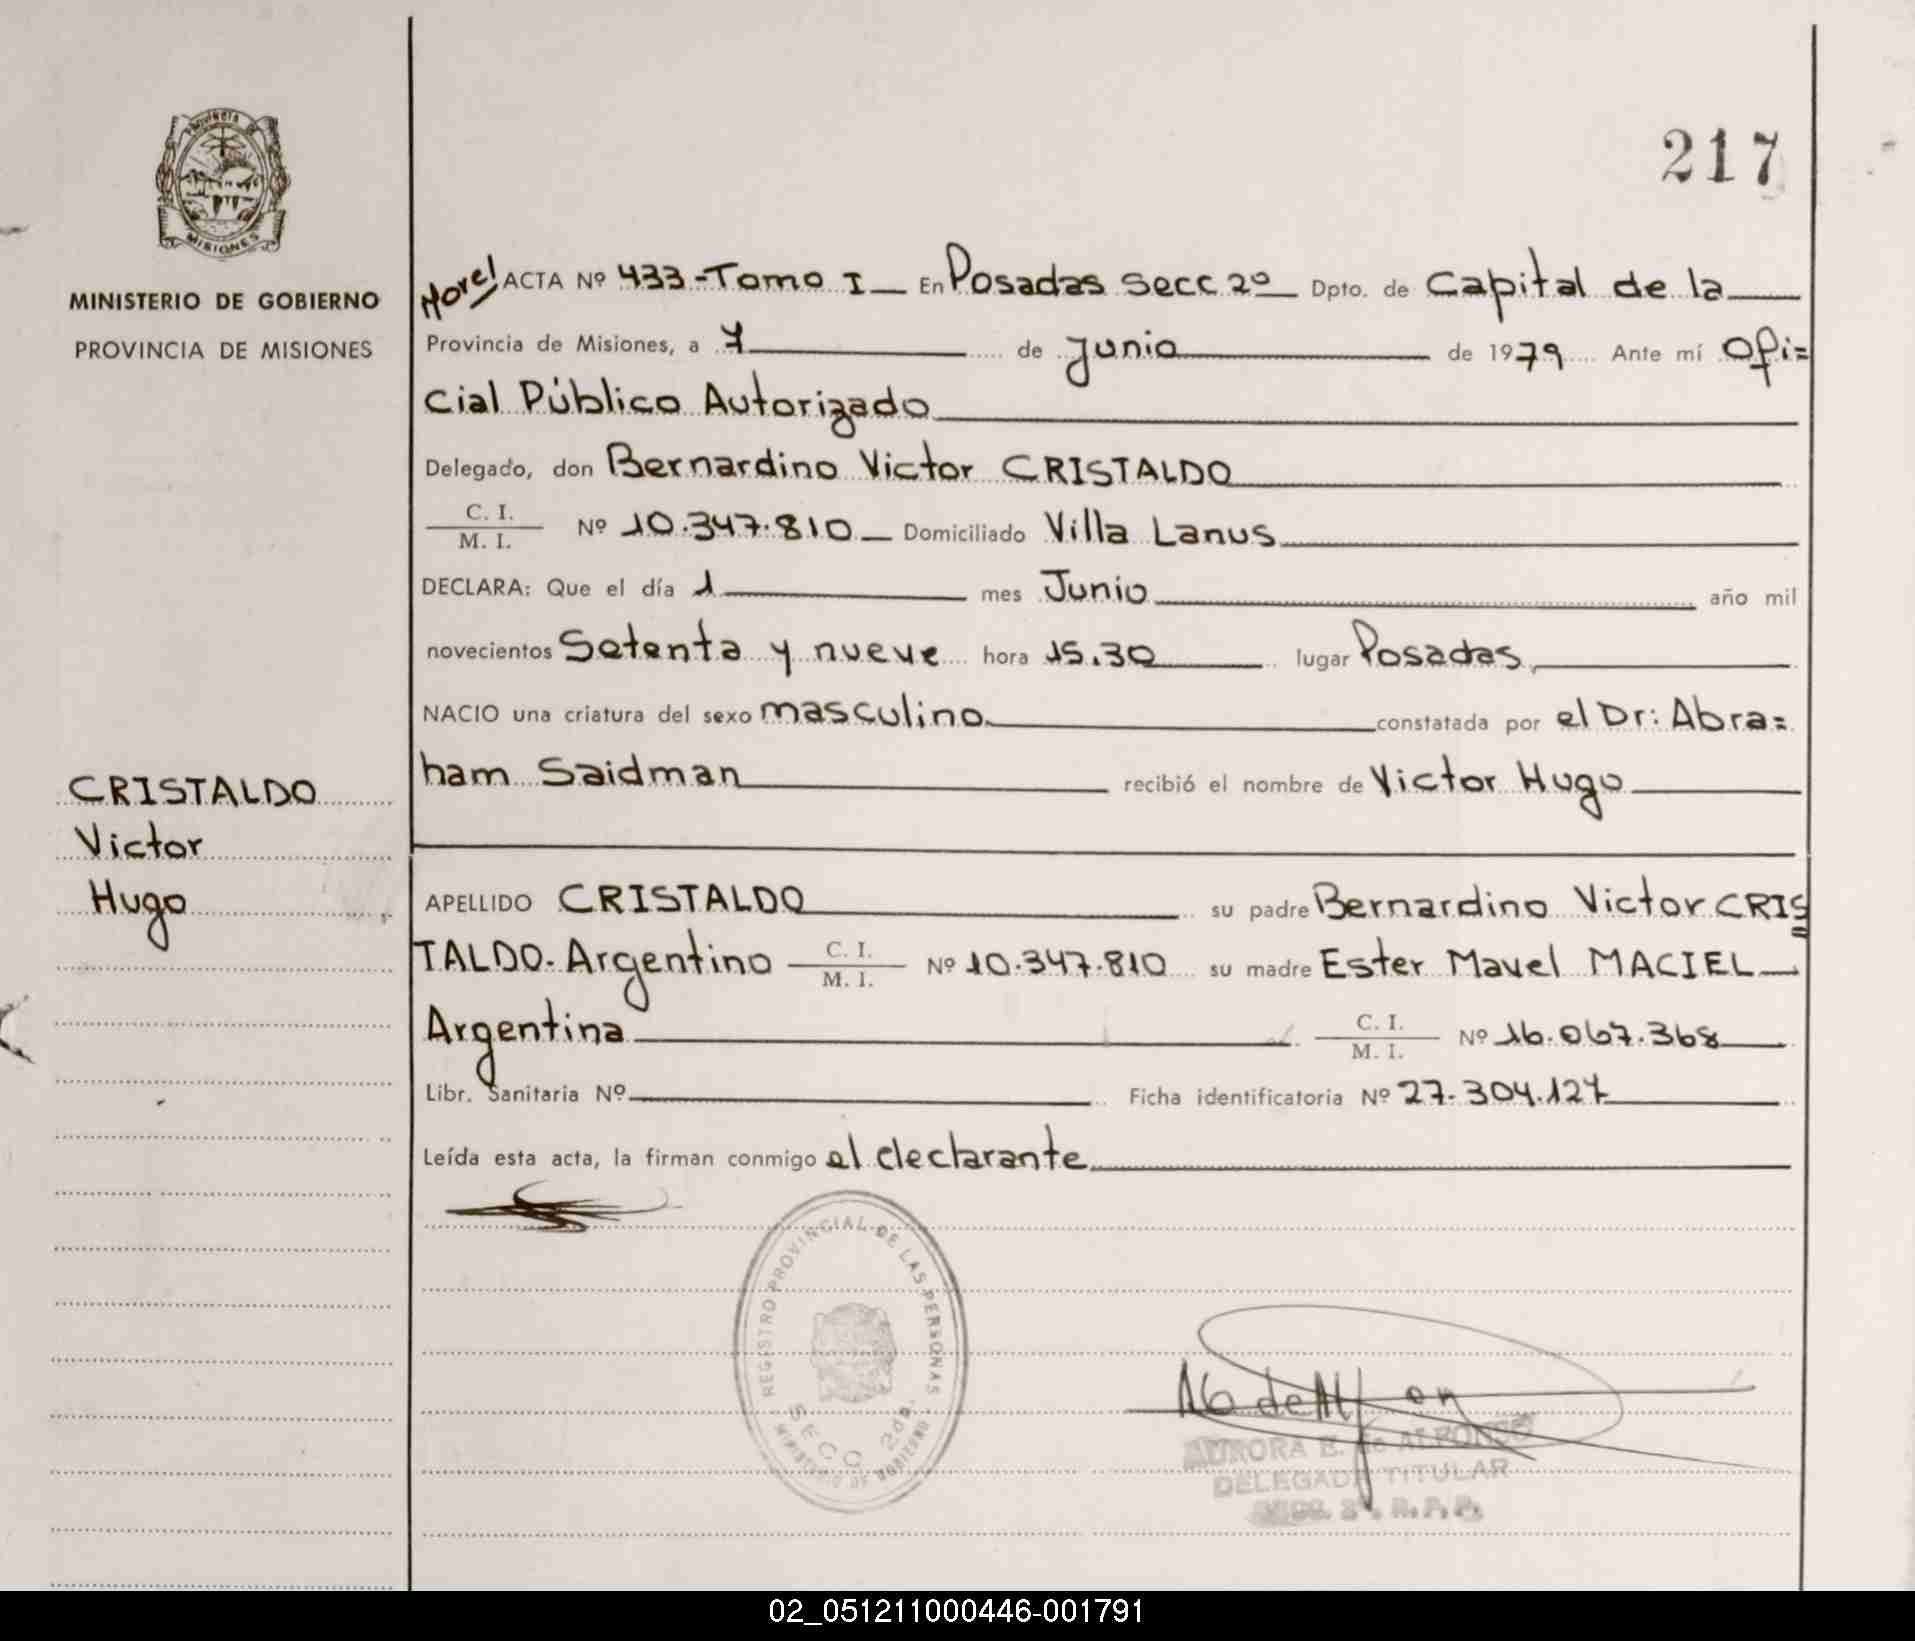 217
PROVINCIA DE
MISIONES
MINISTERIO DE GOBIERNO
PROVINCIA DE MISIONES
CRISTALDO
Victor
Hugo
ACTA Nº 433-Tomo I En Posadas Secc 2º Dpto. de Capital de la
Provincia de Misiones, a 7 de Junio de 1979 Ante mí Ofi=
cial Público Autorizado
Delegado, don Bernardino Victor CRISTALDO
C. I.
M. I. Nº 10.347.810 Domiciliado Villa Lanus
DECLARA: Que el día 1 mes Junio año mil
novecientos Setenta y nueve hora 15.30 lugar Posadas
NACIO una criatura del sexo masculino constatada por el Dr: Abra=
ham Saidman recibió el nombre de Victor Hugo
APELLIDO CRISTALDO su padre Bernardino Victor CRIS
TALDO. Argentino C. I. M. I. Nº 10.347.810 su madre Ester Mavel MACIEL
Argentina C. I. M. I. Nº 16.067.368
Libr. Sanitaria Nº Ficha identificatoria Nº 27.304.127
Leída esta acta, la firman conmigo el declarante
REGISTRO PROVINCIAL DE LAS PERSONAS
SECC 2da.
MINISTERIO DE GOBIERNO
AURORA E. de ALFONSO
DELEGADA TITULAR
SECC. 2ª. R. P. P.
02_051211000446-001791